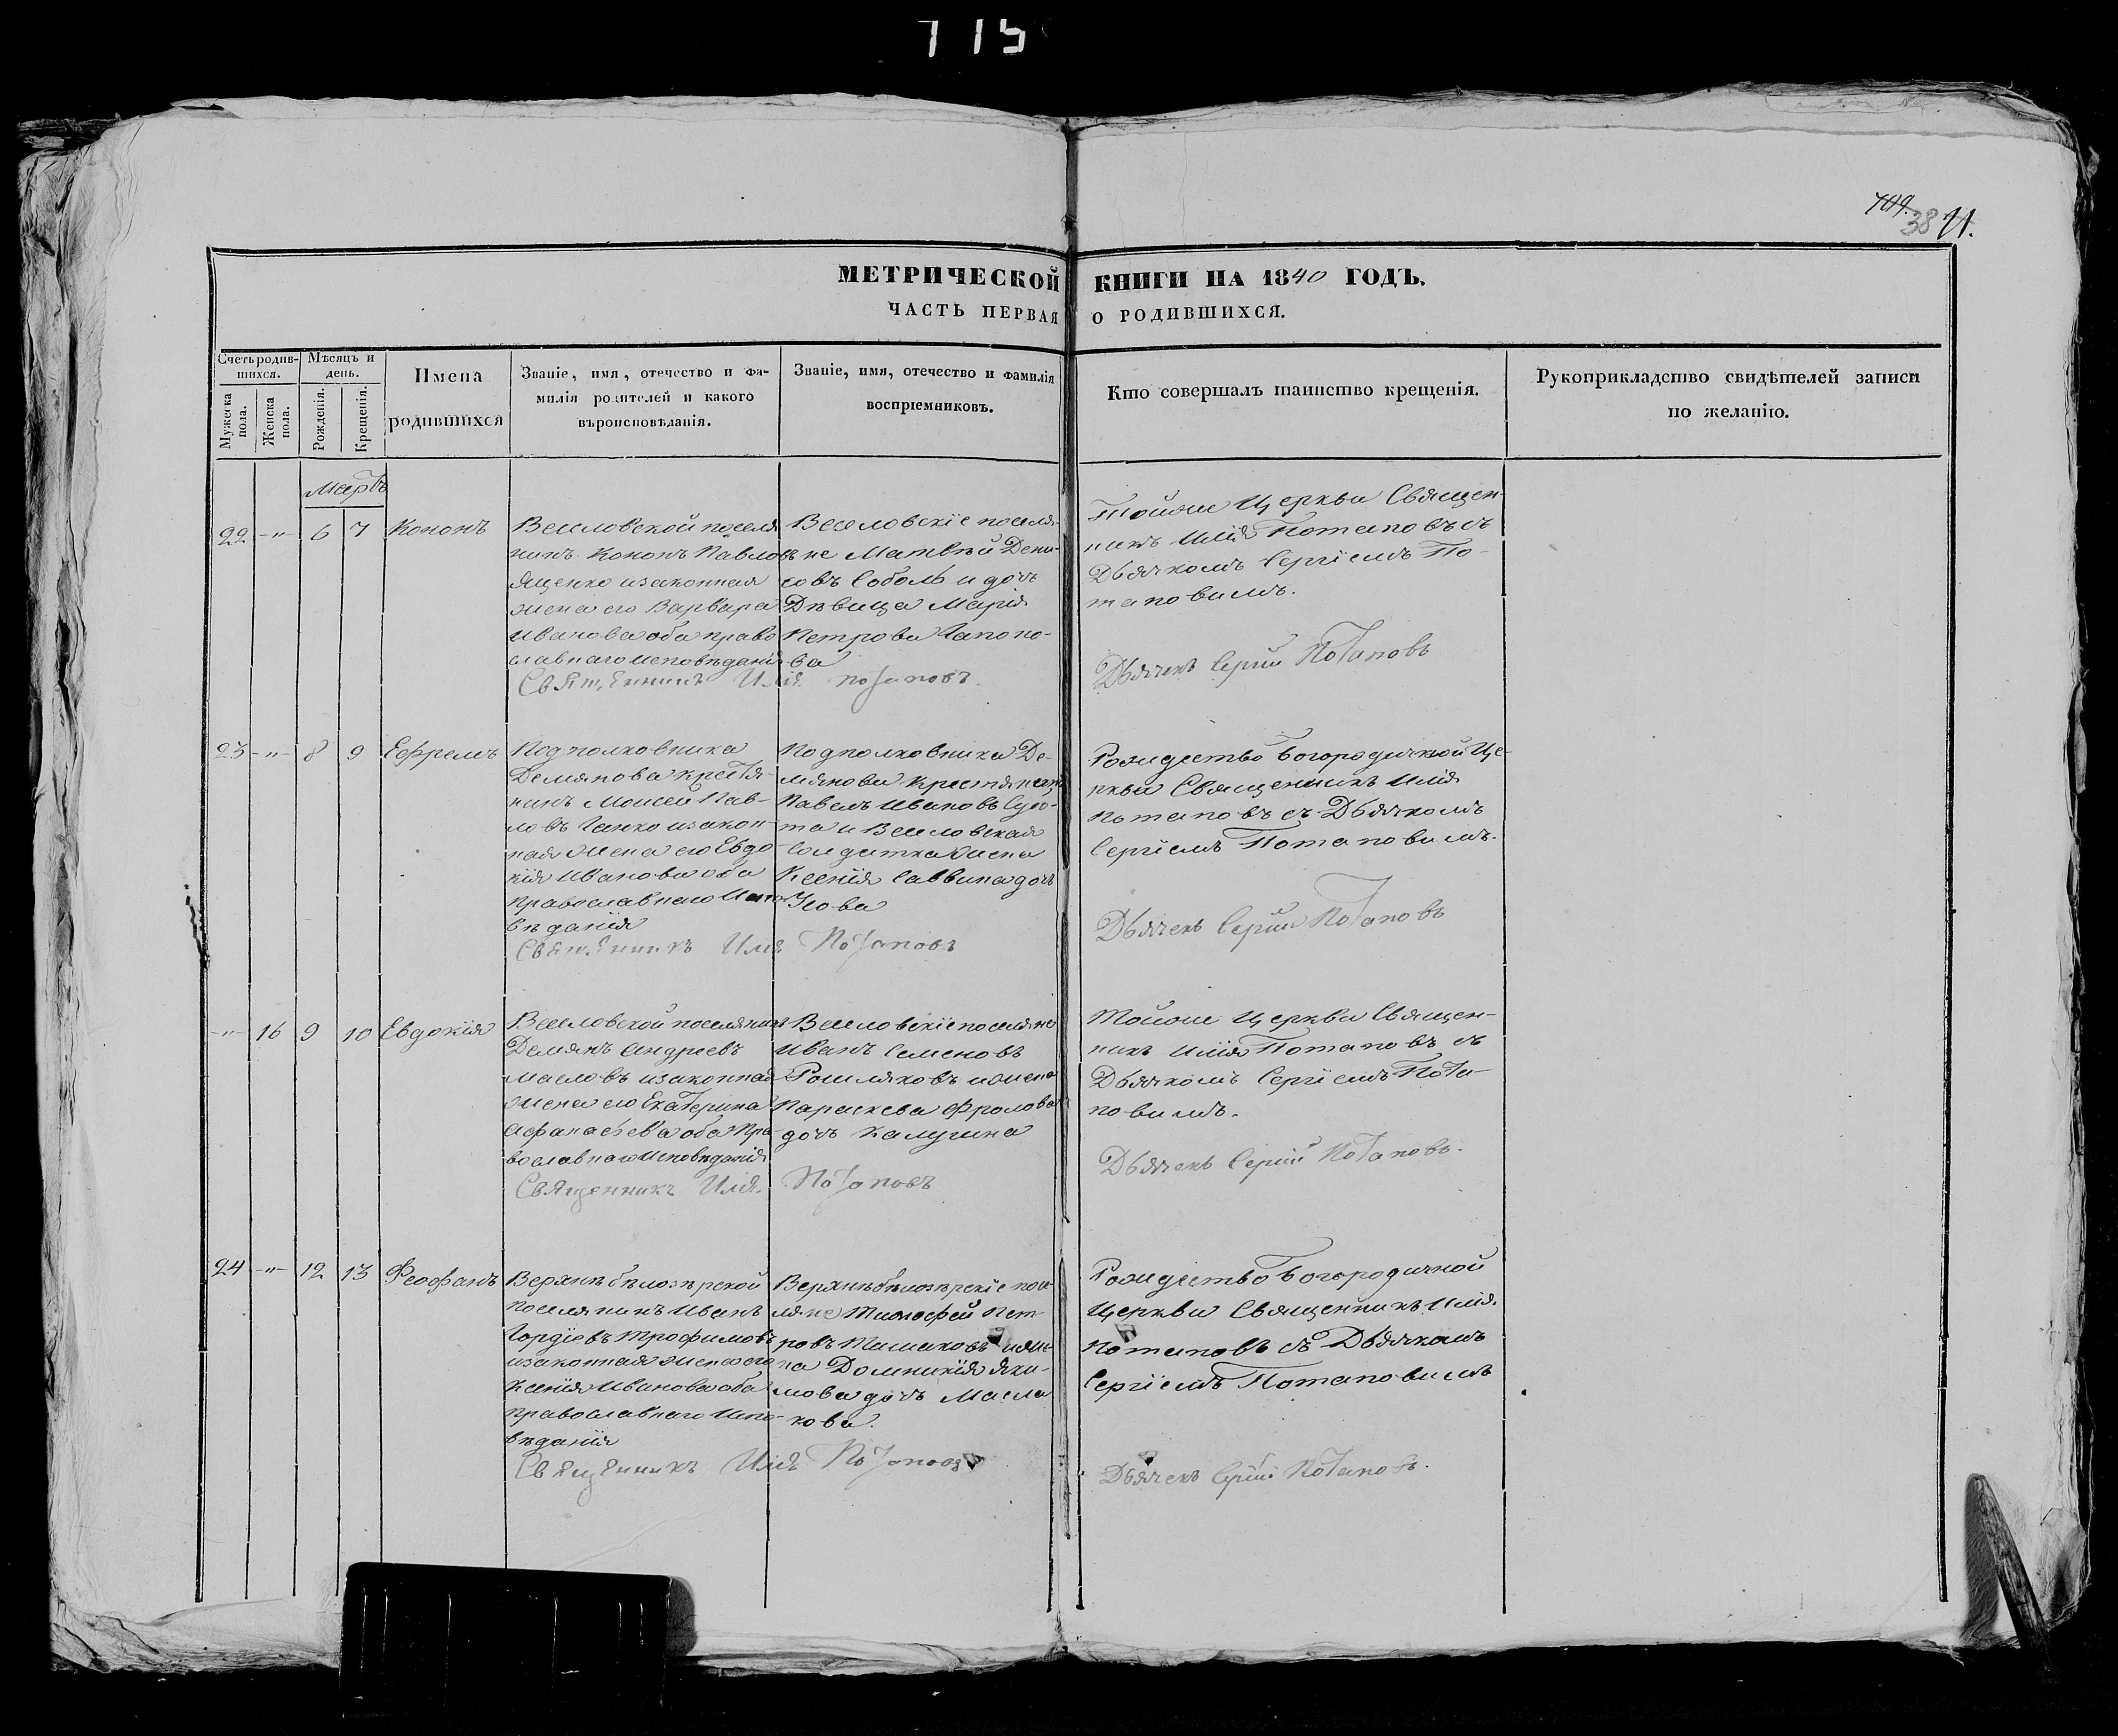 715
709. 38 11.
МЕТРИЧЕСКОЙ КНИГИ НА 1840 ГОДЪ.
ЧАСТЬ ПЕРВАЯ О РОДИВШИХСЯ.
Счетъ родив-
шихся.
Мужеска пола.
Женска пола.
Мѣсяцъ и
день.
Рожденія.
Крещенія.
Имена
родившихся
Званіе, имя, отечество и фа-
милія родителей и какого
вѣроисповѣданія.
Званіе, имя, отечество и фамилія
воспріемниковъ.
Кто совершалъ таинство крещенія.
Рукоприкладство свидѣтелей записи
по желанію.
Мартъ
22 -"- 6 7 Кононъ
Веселовской поселя
нинъ Кононъ Павловъ
ященко изаконная
жена его Варвара
Иванова оба право
славнаго исповѣданія
Веселовскіе поселя-
не Матвѣй Дени-
совъ Соболь и дочь
Дѣвица Марія
Петрова Гапоно-
ва
Священникъ Илія Потаповъ
Тойже Церкви Священ-
никъ Илія Потаповъ съ
Дьячкомъ Сергіемъ По-
таповимъ.
Дьячекъ Сергій Потаповъ
23 -"- 8 9 Ефремъ
Подполковника
Демянова крестя-
нинъ Моисей Пав-
ловъ Ганко изакон-
ная жена его Евдо-
кія Иванова оба
православнаго Испо
вѣданія
Подполковника Де-
мянова крестянинъ
Павелъ Ивановъ
та и Веселовская
Солдатка жена
Ксенія Саввина дочь
Усова
Священникъ Илія Потаповъ
Рождество Богородичной Це-
ркви Священникъ Илія
Потаповъ съ Дьячкомъ
Сергіемъ Потаповимъ.
Дьячекъ Сергій Потаповъ
-"- 16 9 10 Евдокія
Веселовской поселянинъ
Демянъ Андреевъ
Масловъ изаконная
жена его Екатерина
Афанасьева оба Пра-
вославнаго Исповѣданія
Веселовскіе поселяне
Иванъ Семеновъ
Ромляковъ и жена
Параскева Фролова
дочь Калугина
Священникъ Илія Потаповъ
Тойже Церкви Священ-
никъ Илія Потаповъ съ
Дьячкомъ Сергіемъ Пота-
повимъ.
Дьячекъ Сергій Потаповъ.
24 -"- 12 13 Феофанъ
Верхнѣбѣлозѣрской
поселянинъ Иванъ
Гордіевъ Трофимовъ
изаконная жена его
Ксенія Иванова оба
православнаго Испо-
вѣданія
Верхнѣбѣлозѣрскіе посе
ляне Тимофей Пет
ровъ
на Домникія Яки-
мова дочь Масла
кова.
Священникъ Илія Потаповъ
Рождество Богородичной
Церкви Священникъ Илія
Потаповъ съ Дьячкомъ
Сергіемъ Потаповимъ
Дьячекъ Сергій Потаповъ.